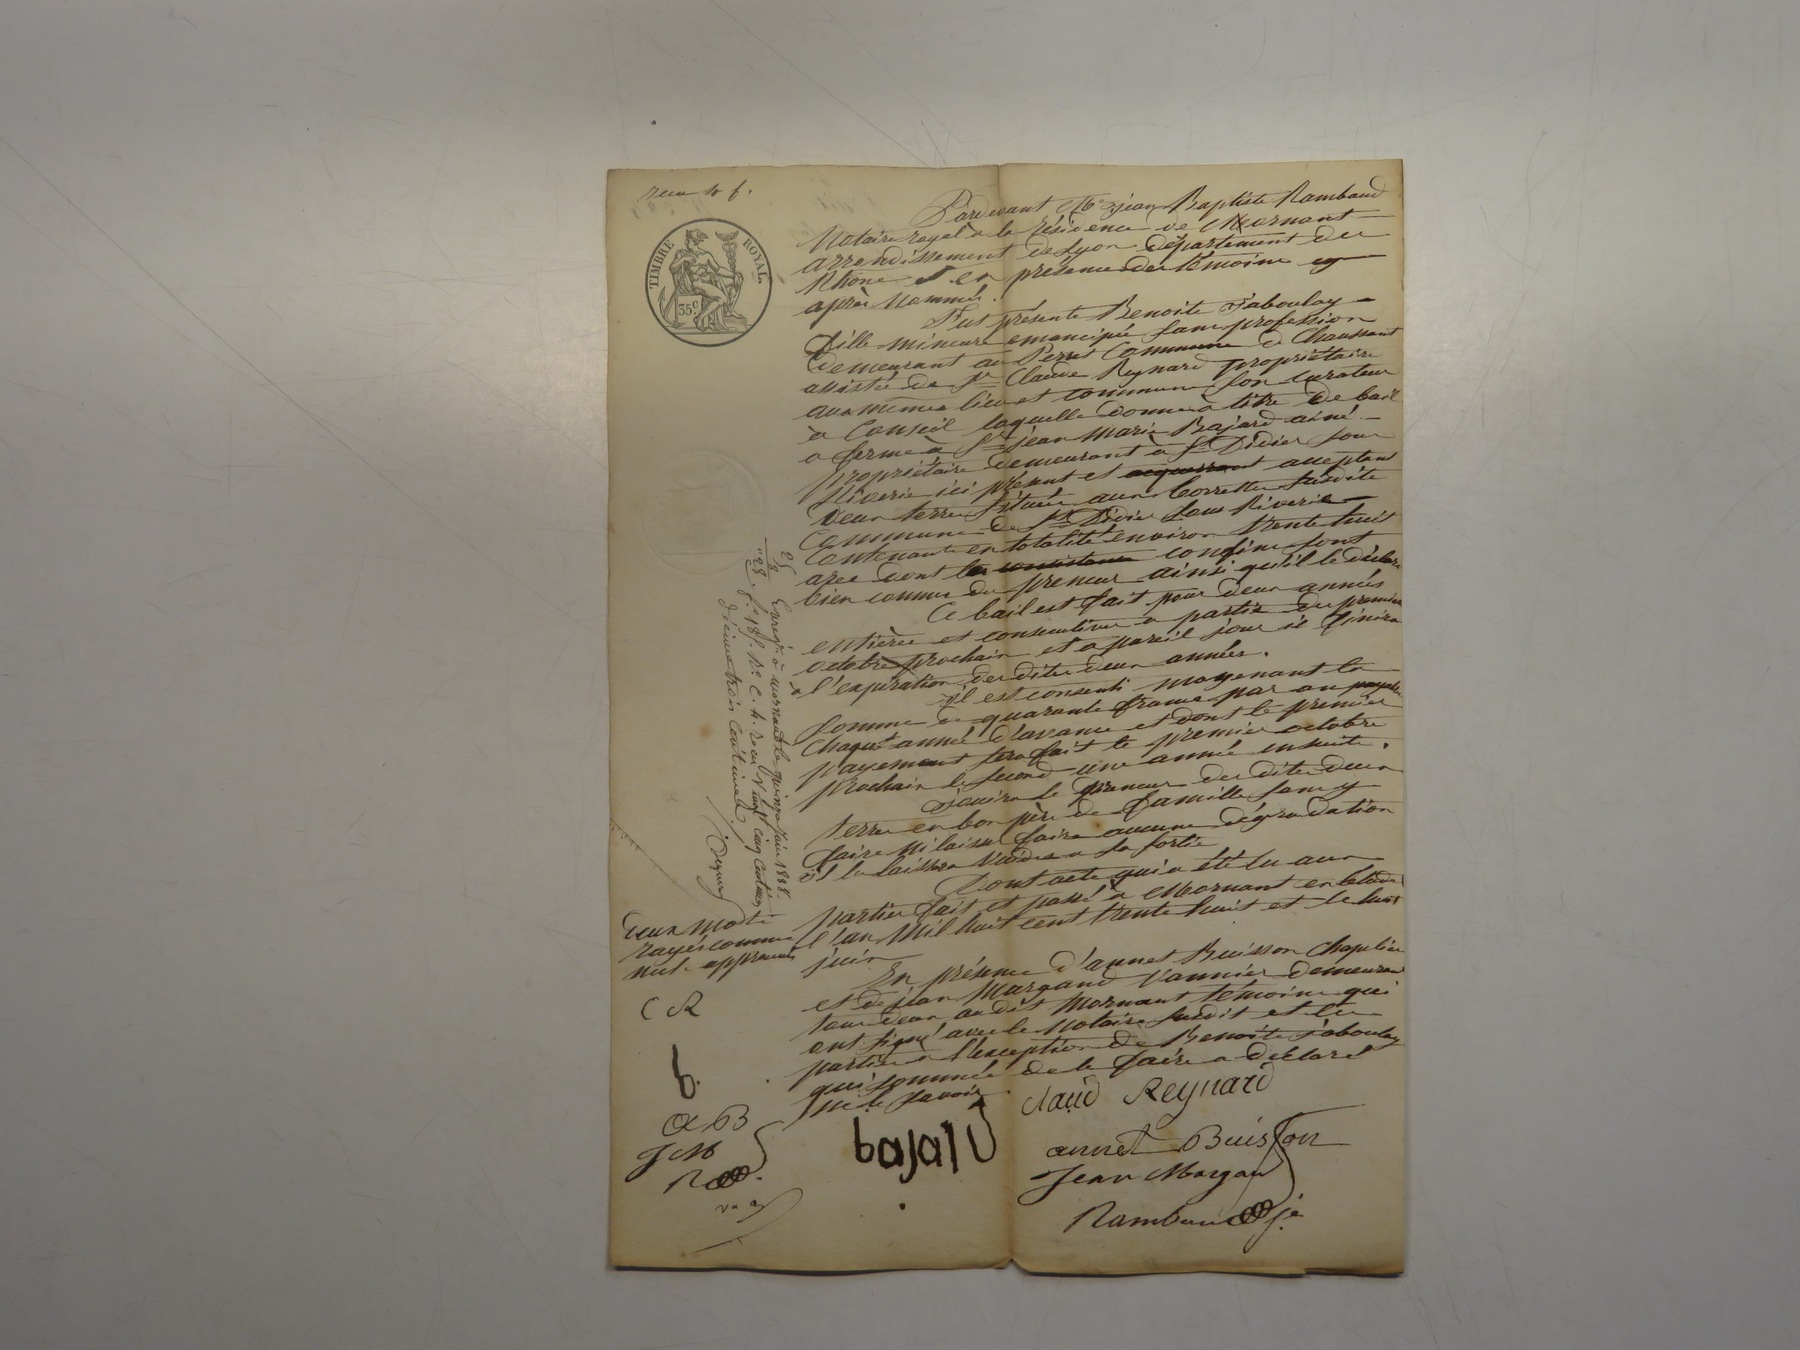 reçu 4 f.
TIMBRE ROYAL
35 c
Pardevant Me jean Baptiste Rambaud
Notaire royal a la résidence de Mornant
arrondissement de Lyon département du
Rhône et en présence des témoins cy
après nommés.
Fut présente Benoite Jaboulay
fille mineure emancipée sans profession
demeurant au Perret Commune de Chaussant
assistée de Sr Claude Reynard propriétaire
aux mêmes lieu et commune son curateur
à Conseil laquelle donne a titre de bail
a ferme à Sr jean Marie Bajard ainé
propriétaire demeurant à St Didier sous
Riverie ici présent et acquerrant acceptant
deux terres situées aux Corrette susdite
Commune de St Didier sous Riverie
Contenante en totalité environ trente huit
ares dont les consistance confins sont
bien connus du preneur ainsi qu'il le déclare
Ce bail est fait pour deux années
entières et consecutives a partir du premier
octobre prochain et a pareil jour il finira
a l'expiration des dites deux années.
Il est consenti moyenant la
somme de quarante francs par an payable
chaque année d'avance et dont le premier
payement sera fait le premier octobre
prochain le second une année ensuite.
Jouira le preneur des dites deux
terres en bon père de famille sans y
faire ni laisser faire aucune dégradation
il les laissera vuides a sa sortie
Dont acte qui a été lu aux
parties fait et passé à Mornant en l'étude
l'an mil huit cent trente huit et le huit
juin
En présence d'annet Buisson Chapelier
et de jean Margand Vannier demeurant
tous deux au dit Mornant témoins qui
ont signé avec le Notaire susdit et les
parties a l'exception de Benoite Jaboulay
qui sommée de le faire a déclaré
ne le savoir
25
3
28
Enregé à mornant le quinze juin 1838.
fo 18 Ro C. 4. reçu vingt cinq centimes
décime trois centimes
deux mots
rayés comme
nuls approuvés
C R
b.
a B
J M
R
claud Reynard
bajard
annet Buisson
Jean Margan
Rambaud